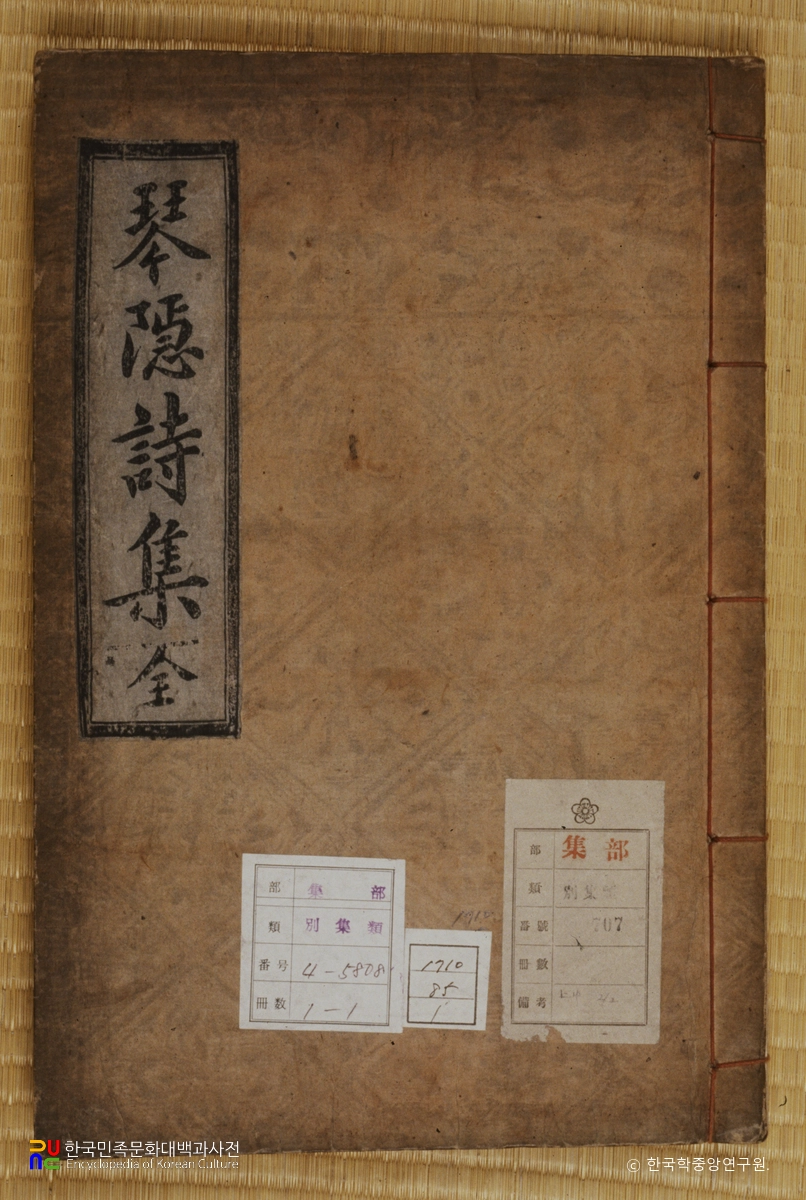 琴隱詩集 全
部 集部
類 別集類
番号 4-5808
冊数 1-1
1710
85
1
部 集部
類 別集
番號 707
冊數
備考
한국민족문화대백과사전
Encyclopedia of Korean Culture
© 한국학중앙연구원